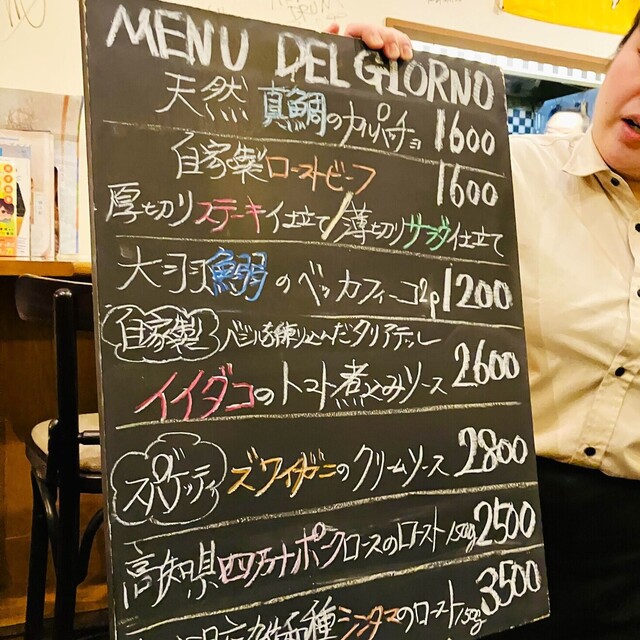 MENU DEL GIORNO
天然 真鯛のカルパッチョ 1600
自家製ローストビーフ 1600
厚切りステーキ仕立て/薄切りサラダ仕立て
大羽鰯のベッカフィーコ 2p 1200
自家製 バジルを練り込んだタリアテッレ
イイダコのトマト煮込みソース 2600
スパゲッティ ズワイガニのクリームソース 2800
高知県四万十ポークロースのロースト150g 2500
種シンタマのロースト150g 3500